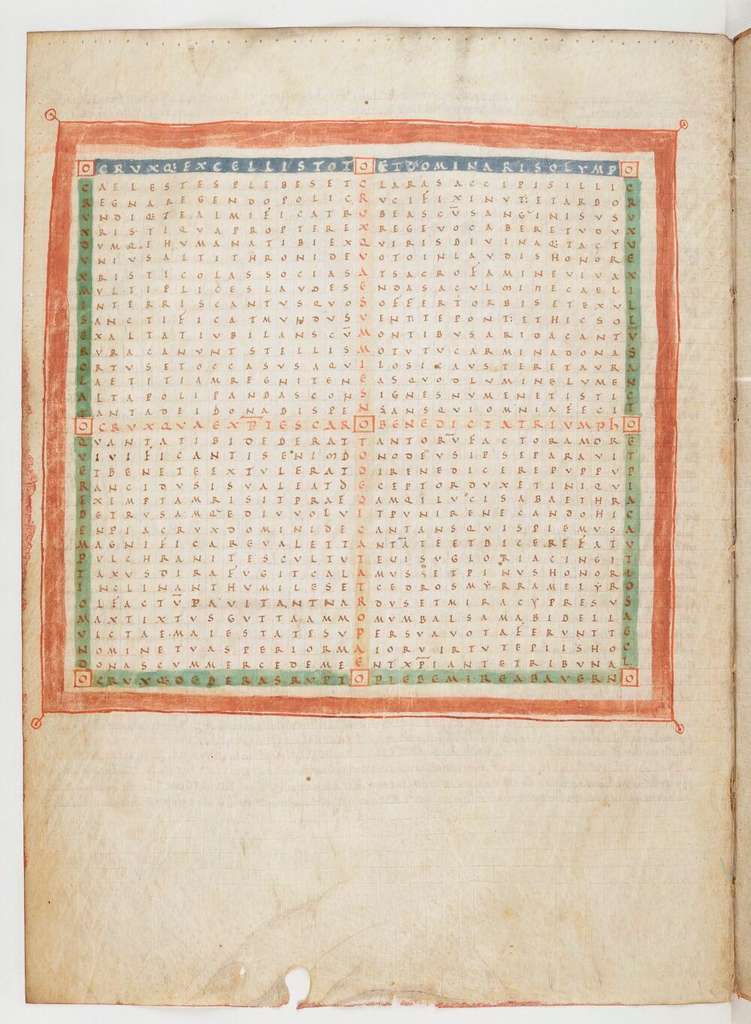 OCRVXQ:EXCELLISTOTOETDOMINARISOLYMPO
CAELESTESPLEBESETCLARASACCIPISILLIC
REGNAREGENDOPOLICRVCIFIXINVT:ETARBOR
VNDIQ:TEALMIFICATRVBEASCVSANGINISVSV
XRISTIQVAPROPTEREXREGEVOCABERETVDVX
DVMQ:EHVMANATIBIEXQVIRISDIVINAQ:TACTV
VNIVSALTITHRONIDEVOTOINLAVDISHONORE
XRISTICOLASSOCIASATSACROFAMINEVIVAX
MVLTIPLICESLAVDESENDASACVLMINECAELI
INTERRISCANTVSQVOSOFFERTORBISETEXVL
SANCTIFICATMVNDVSVENTITEPONT:ETHICSOL
EXALTATIVBILANSCVMMONTIBVSRIDACANTV
RVRACANVNTSTELLISMOTVTVCARMINADONAS
ORTVSETOCCASVSAQVILOSICAVSTERETAVRA
LAETITIAMREGNITENEASQVODLVMINELVMEN
ALTAPOLIPANDASCONSIGNESNVMENTETISNAC
TANTADEIDONABISPENSANSQVIOMNIAFECIT
OCRVXQVAEXPTESCAROBENEDICTATRIVMPhO
QVANTATIBIDEDERATTANTORVFACTORAMORE
VIVIFICANTISENIMDONDOVESIPSEPARAVIT
ETBENETEEXTVLERATDIRENEDICEREPVPPVP
RANCIDVSISVALEATDECEPTORDVXETINIQVI
EXIMPTAMRISITPRAEDAMQ:LVCISABAETHRA
DETRVSAMQ:EDIVOLVITPVNIRENECANDOHIC
ENPIACRVXDOMINIDECANTANSQVISPIEMVSA
MAGNIFICAREVALETTANTATEETBICEREFATV
PVLCHRANITESCVLTVTEVISVGLORIACINGIT
TAXVSDIRAFVGITCALAMVSETPINVSHONORO
INCLINANTHVMILESETCEDROSMYRRAMELYRS
OLEACTVPAVITANTNARDVSETMIRACYPRESVS
MAXTIXTVSGVTTAAMMOMVMBALSAMABIDELLA
VICTAEMAIESTATESVPERSVAVOTAFERVNTTE
NOMINETVASPERIORMAIORVIRTVTEPIISHOC
DONASCVMMERCEDEMEENTXPIANTETRIBVNAL
OCRVXQ:DEDERASRVPTOPIEDEMIREABAVERNO